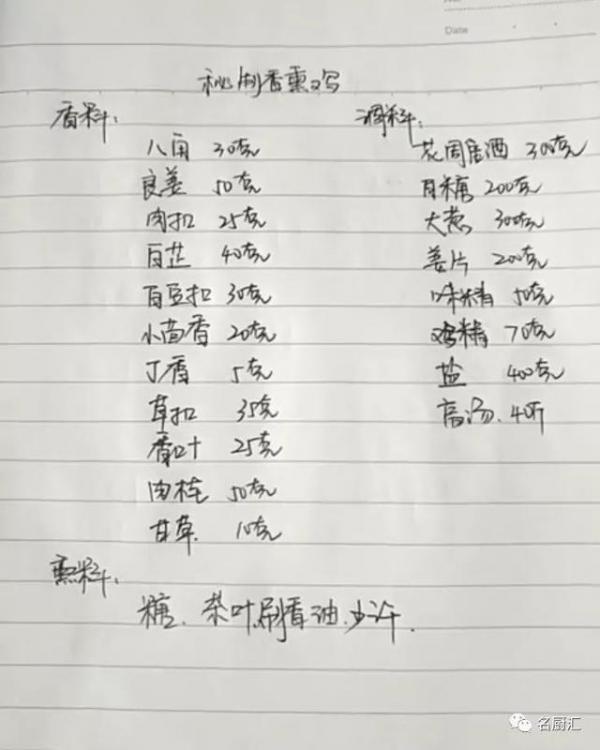 Date
秘制香熏鸡
香料:
八角 30克
良姜 50克
肉扣 25克
白芷 40克
白豆扣 30克
小茴香 20克
丁香 5克
草扣 35克
香叶 25克
肉桂 50克
甘草 10克
调料:
花周居酒 300克
白糖 200克
大葱 300克
姜片 200克
味精 50克
鸡精 70克
盐 400克
高汤.40斤
熏料:
糖、茶叶.刷香油.少许.
名厨汇